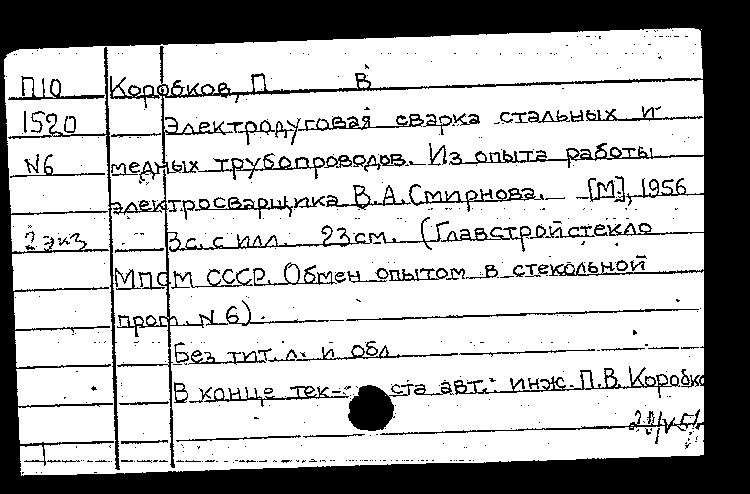 П10 Коробков, П В
1520 Электродуговая сварка стальных и
N6 медных трубопроводов. Из опыта работы
электросварщика В.А. Смирнова. [М], 1956
2 экз 3с. с илл. 23см. (Главстройстекло
МПСМ СССР. Обмен опытом в стекольной
пром. N 6).
Без тит. л. и обл.
В конце тек- ста авт.: инж. П.В. Коробко